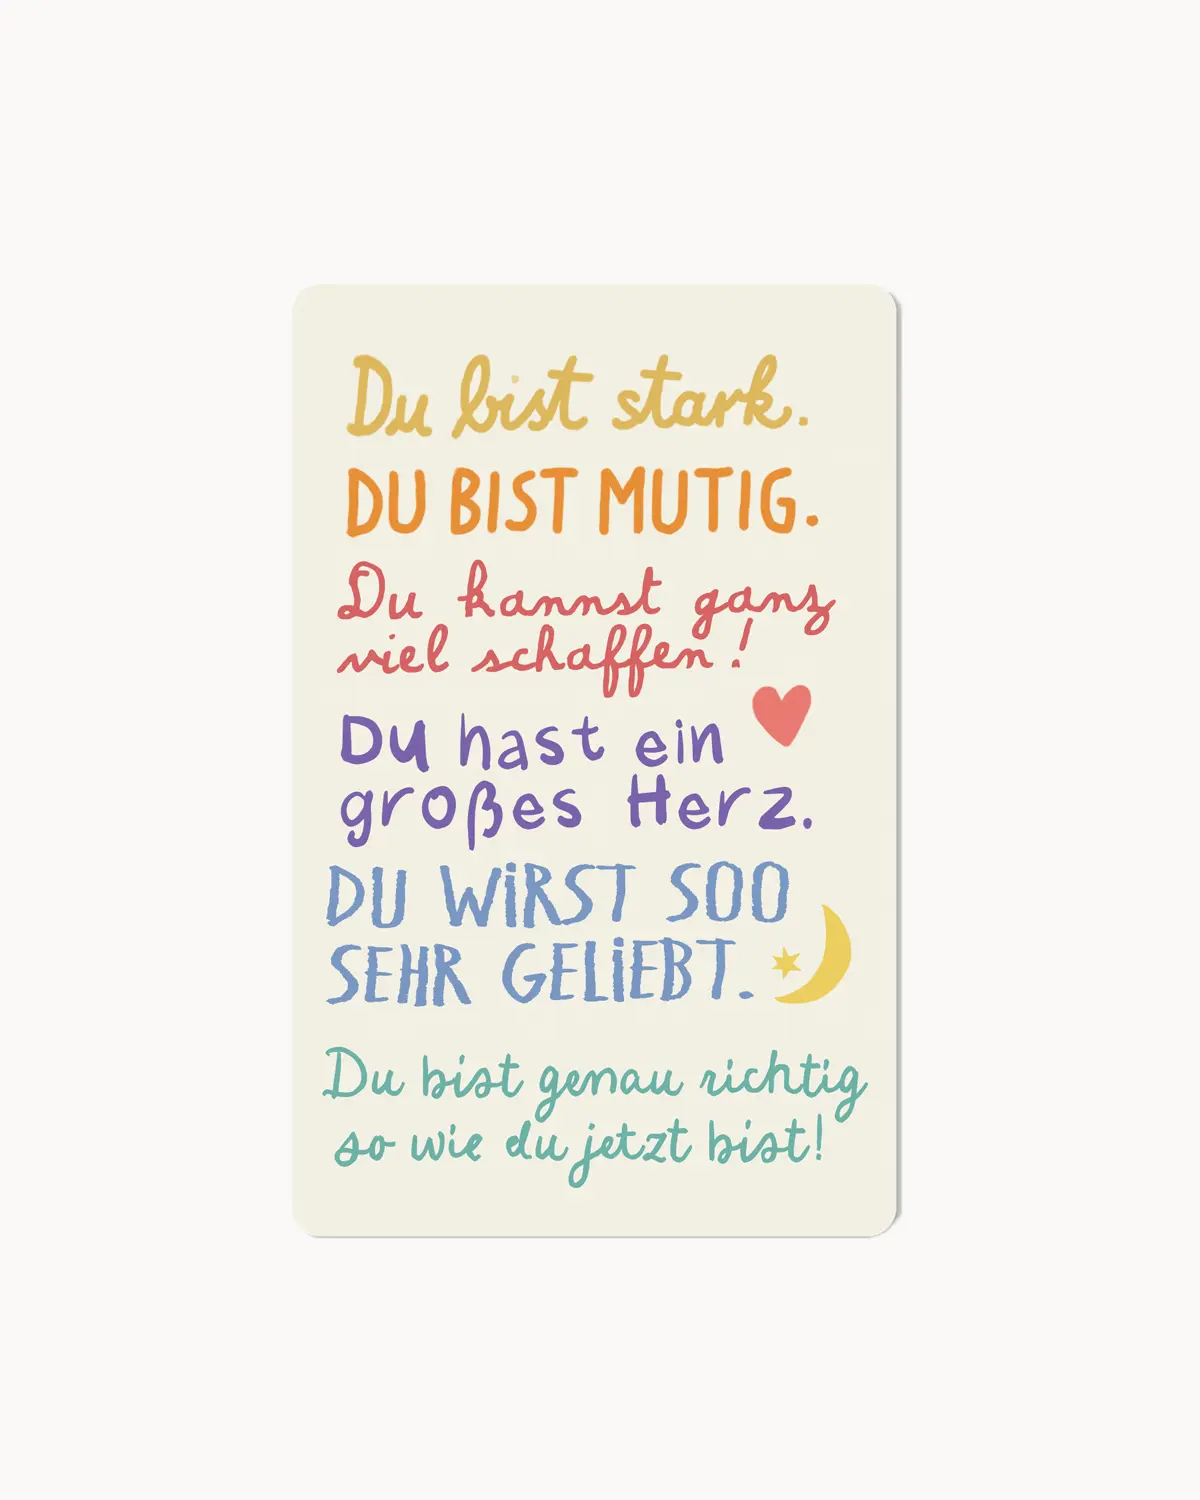 Du bist stark.
DU BIST MUTIG.
Du kannst ganz
viel schaffen!
Du hast ein
großes Herz.
DU WiRST SOO
SEHR GELiEBT.
Du bist genau richtig
so wie du jetzt bist!